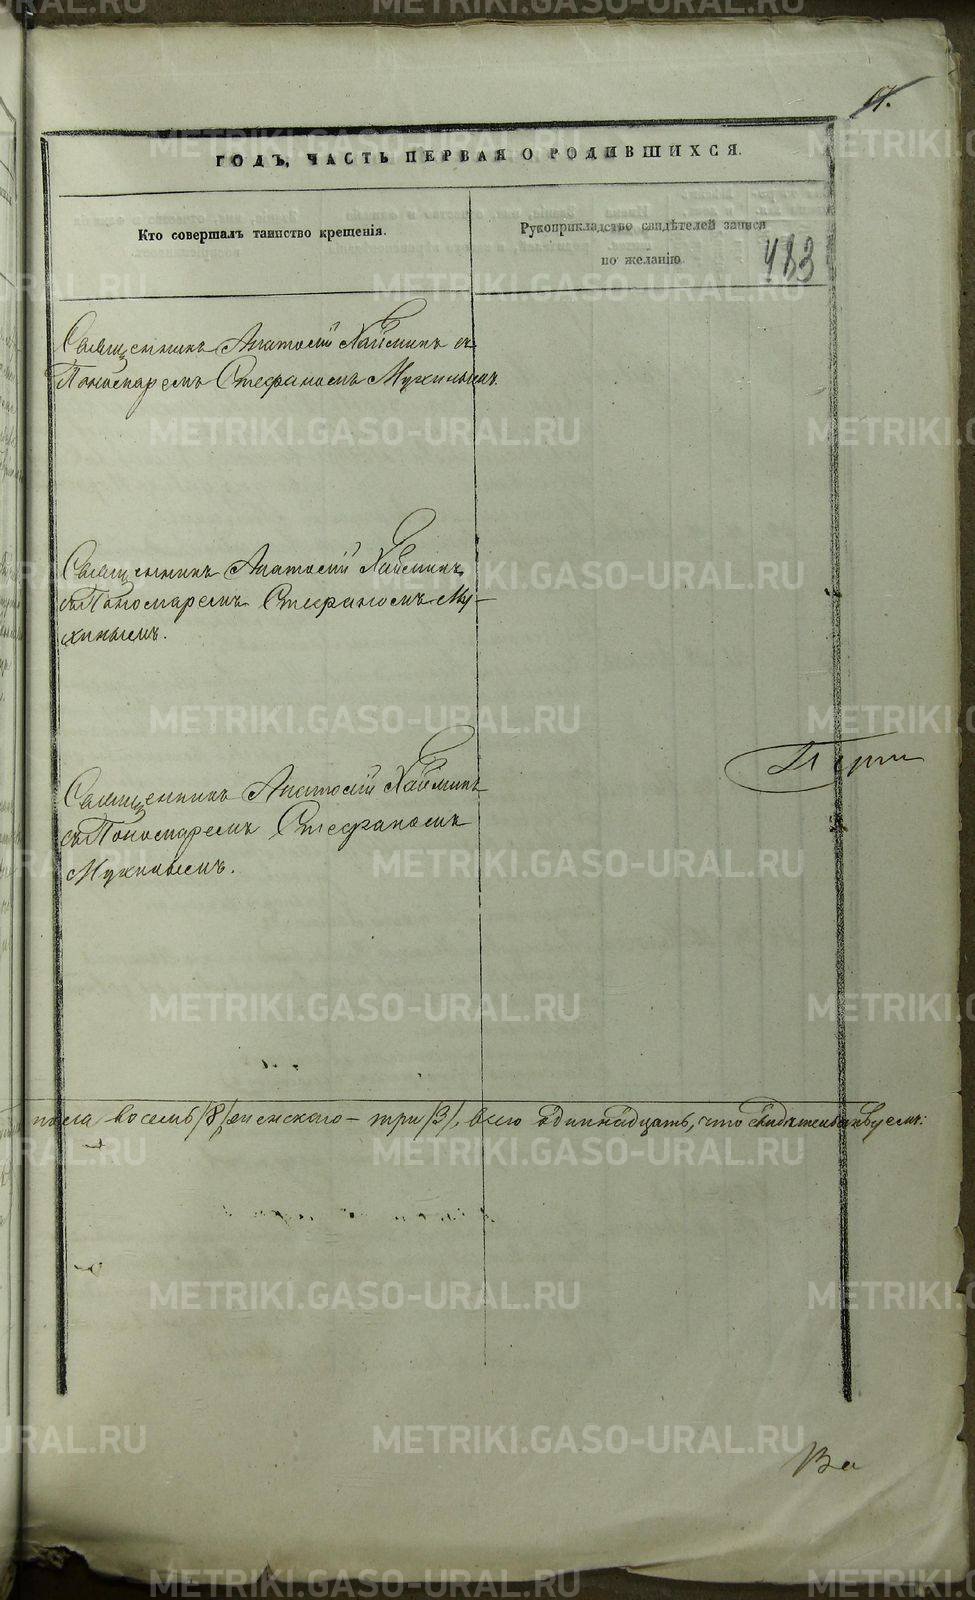 17.
ГОДЪ, ЧАСТЬ ПЕРВАЯ О РОДИВШИХСЯ.
Кто совершалъ таинство крещенія.
Рукоприкладство свидѣтелей записи
по желанію
483
Священникъ Анатолій Хаймин съ
Пономаремъ Стефаномъ Мухинымъ.
Священникъ Анатолій Хайминъ
съ Пономаремъ Стефаномъ Му-
хинымъ.
Священникъ Анатолій Хайминъ
съ Пономаремъ Стефаномъ
Мухинымъ.
пола восемь /8/, женскаго – три /3/, всего одиннадцать, что свидѣтельствуемъ:
METRIKI.GASO-URAL.RU